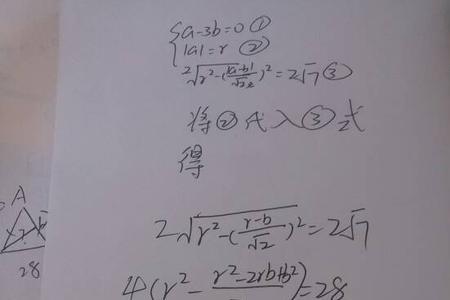 {a-3b=0 ①
|a|=r ②
2√(r²-(|a-b|/√2)²)=2√7 ③
将②代入③式
得
2√(r²-(r-b/√2)²)=2√7
A
28
4(r²-r²-2rb+b²)=28